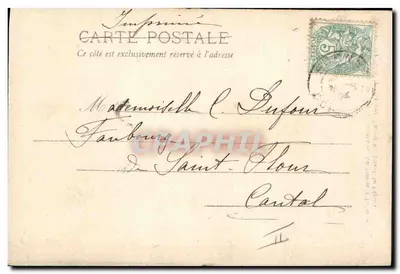 Imprimé
CARTE POSTALE
Ce côté est exclusivement réservé à l'adresse
Mademoiselle C Dufour
Faubourg
de Saint-Flour
Cantal
II
5
CPAPHIL